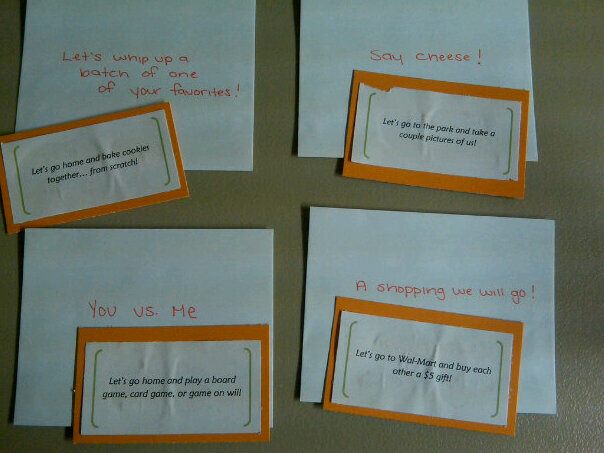 Let's whip up a
batch of one
of your favorites!
Let's go home and bake cookies
together... from scratch!
Say cheese!
Let's go to the park and take a
couple pictures of us!
You vs. Me
Let's go home and play a board
game, card game, or game on wii!
A shopping we will go!
Let's go to Wal-Mart and buy each
other a $5 gift!